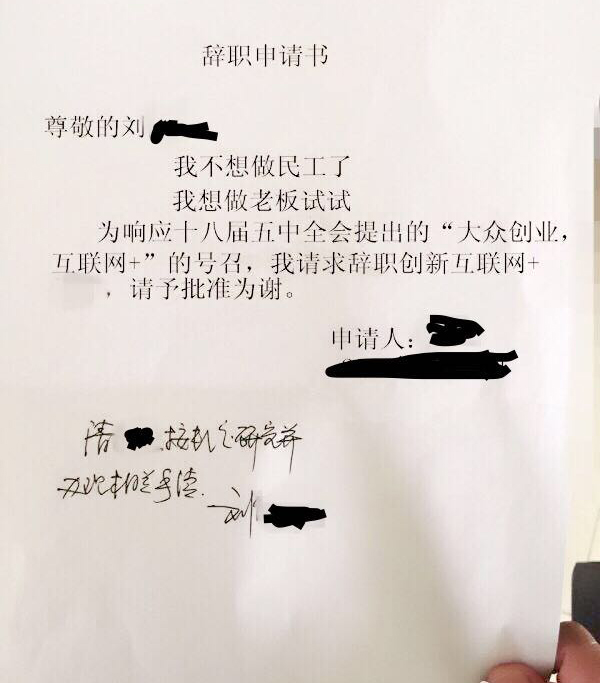 辞职申请书
尊敬的刘
我不想做民工了
我想做老板试试
为响应十八届五中全会提出的“大众创业，
互联网+”的号召，我请求辞职创新互联网+
，请予批准为谢。
申请人：
请 按机 研究并
办理相关手续.
刘